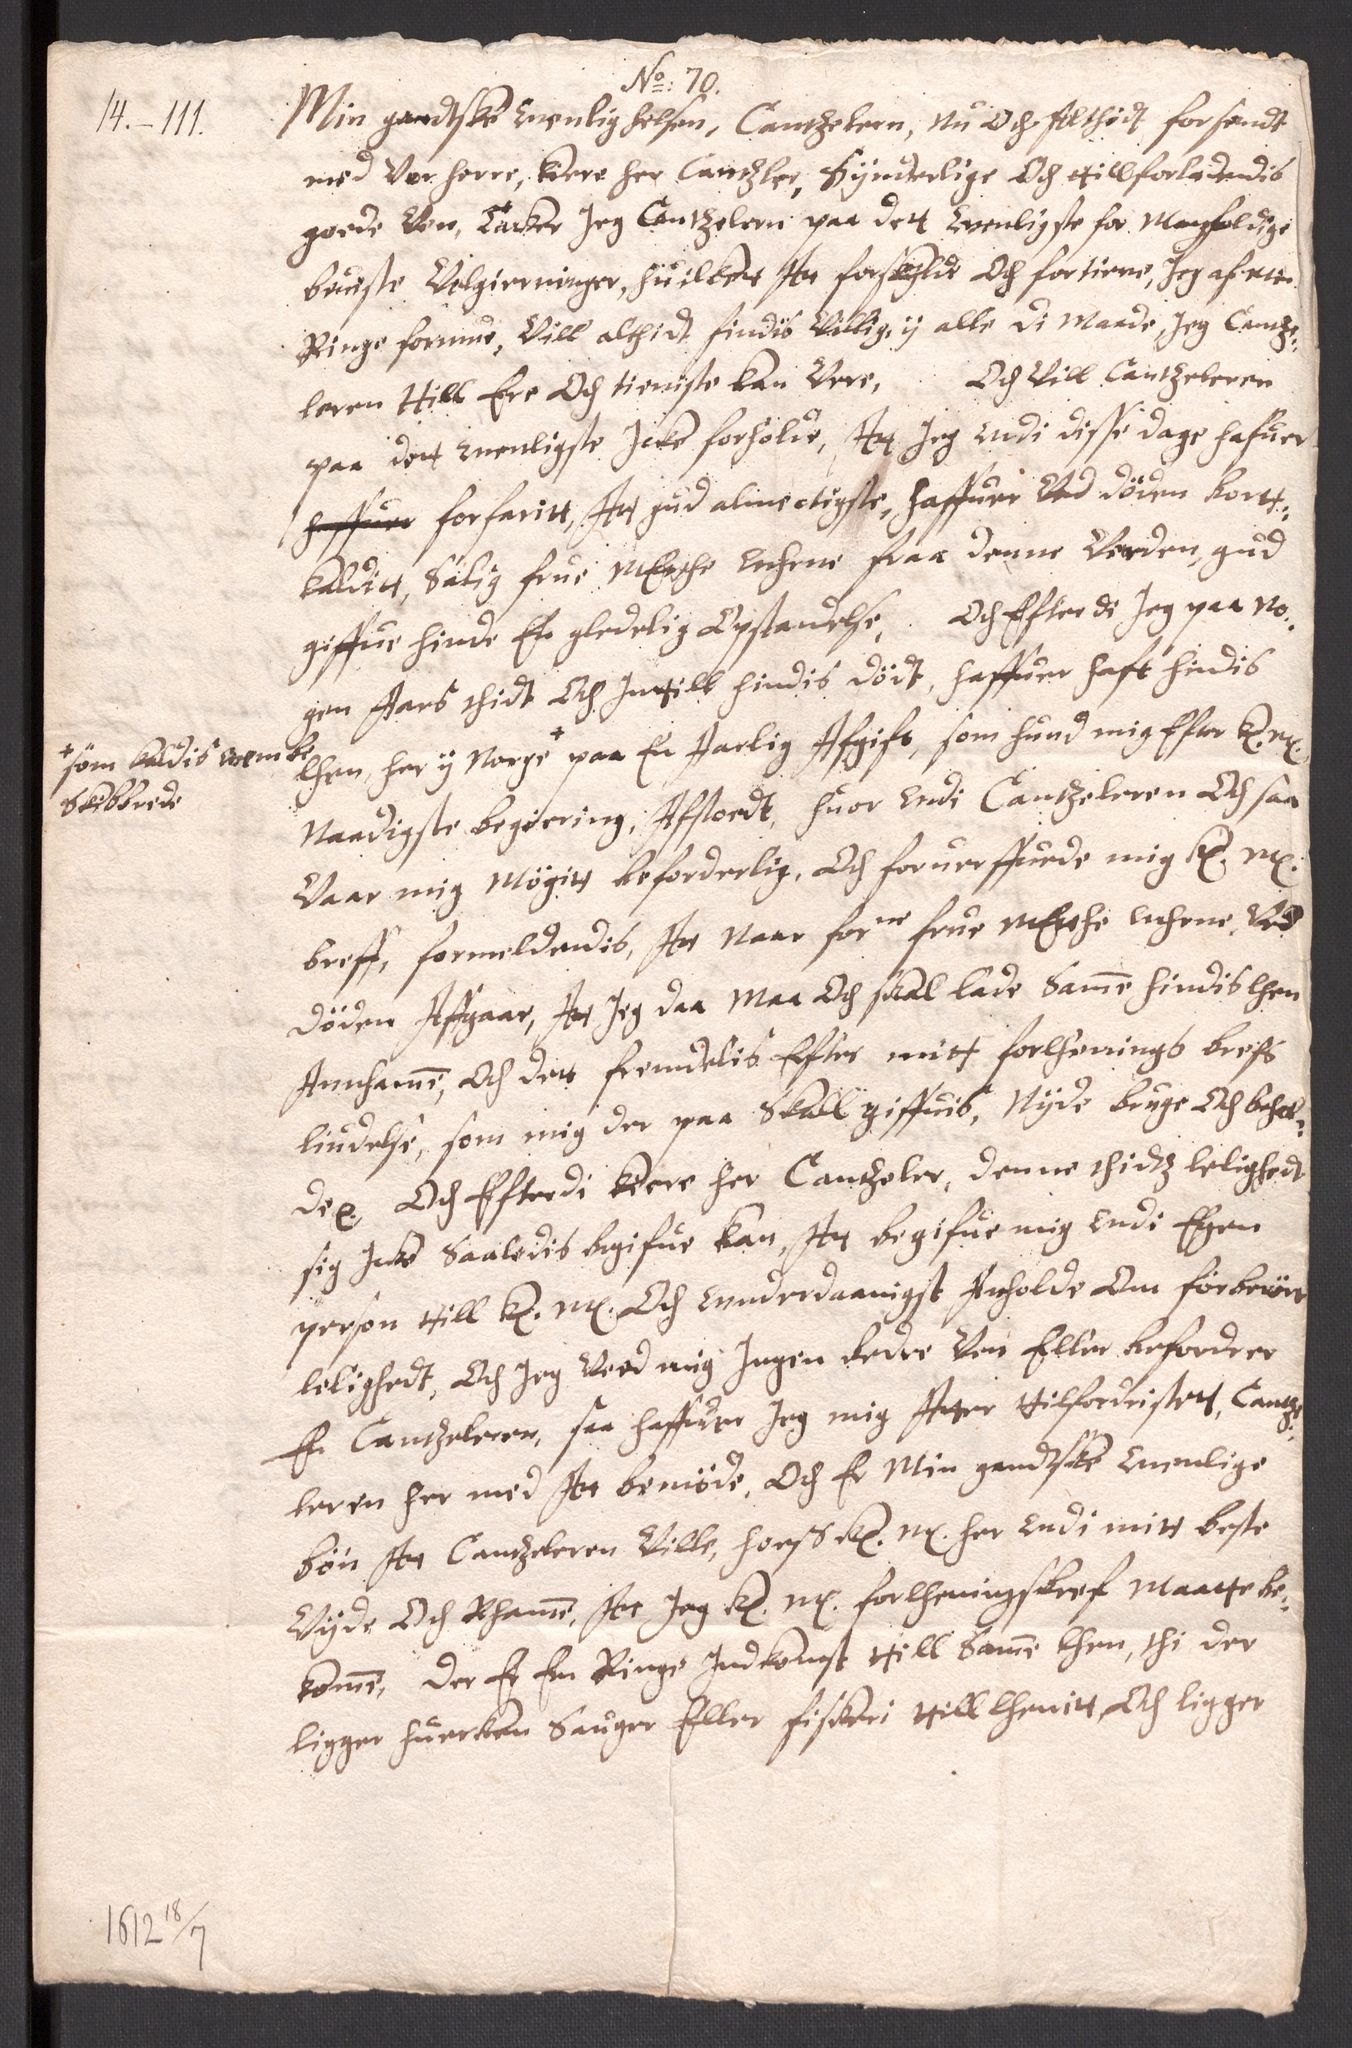 No: 70.
14.-111.
Min gandtske wenlig helsen, Cantzelern, nu Och Althidt forsendt
med Vor herre, kiere her Cantzler, Synderlige Och tillforladendis
goede Ven, Tacker Jeg Cantzelern paa dett wenligste for Mangfoldige
beuiste Velgierninger, huilkett Att forskylde Och fortiene, Jeg af min
Ringe formue, Vill althidt findis Villig, ij alle di Maade, Jeg Cantze,,
leren till Ere Och tieniste kan Vere, Och Vill Cantzeleren
paa dett wenligste Icke forholde, Att Jeg wdi disse dage hafuer
haffuer forfaritt, Att gud almectigste, haffuer Ved döden bortt,,
kalditt, Salig frue Merthe wehrne fraa denne Verden, gud
giffue hinde En gledelig Opstandelse, Och Efterdi Jeg paa No,,
gen Aars thidt Och Intill hindis dödt, haffuer haft hindis
lhen, her ij Norge + paa En Aarlig Afgift, som hund mig Efter K. M.
+ som kaldis
Skibbrede
Naadigste begiering, Afstoedt, huor wdi Cantzeleren Och saa
Vaar mig Mögitt beforderlig, Och foruerffuede mig K. M.
breff, formeldendis, Att Naar forne frue Merthe wehrne Ved
döden Affgaar, Att Jeg daa Maa Och skal lade Samme hindis lhen
Annhamme, Och dett fremdelis Effter mitt forlhenings brefs
liudelse, som mig der paa Skall giffuis, Nyde bruge Och behol,,
de, Och Effterdi kiere her Cantzeler, denne thidtz lelighedt
sig Icke Saaledis begifue kan, Att begifue mig wdi Egen
person till K. M. Och wnderdaanigst Anholde Om förberörte
lelighedt, Och Jeg Veed mig Ingen bedre Ven Eller befordrer
En Cantzeleren, saa haffuer Jeg mig Atter tilfordristett, Cantze,,
leren her med Att bemöde, Och Er Min gandtske wenlige
bön Att Cantzeleren Ville, hoess K. M. her wdi mitt beste
Vijde Och Rhamme, Att Jeg K. M. forlheningsbref Maatte be,,
komme, der Er En Ringe Indkomst till Samme lhen, thi der
ligger huerken Sauger Eller fiskeri till lhenitt Och ligger
1612 18/7